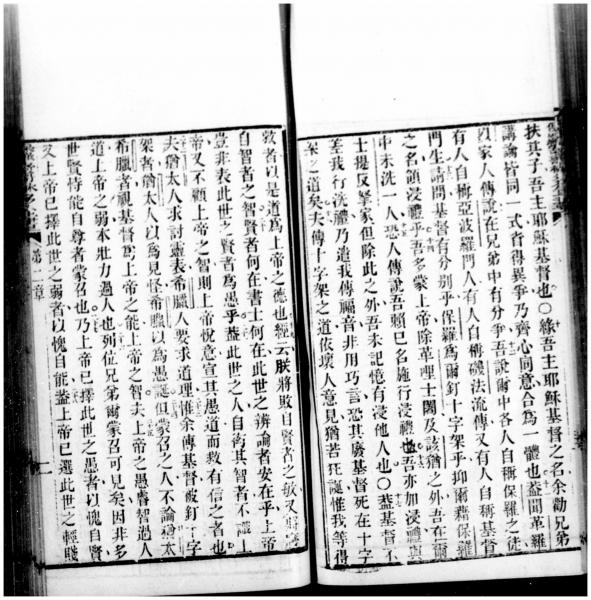 扶其子吾主耶穌基督也〇緣吾主耶穌基督之名余勸兄弟
講論皆同一式省得異爭乃齊心同意合為一體也葢聞革羅
以家人傳說在兄弟中有分爭吾說爾中各人自稱保羅之徒
有人自稱亞波羅門人有人自稱磯法流傳又有人自稱基督
門生請問基督有分別乎保羅為爾釘十字架乎抑爾藉保羅
之名領浸禮乎吾多蒙上帝除革哩士闊及該猶之外吾在爾
中未洗一人恐人傳說吾賴己名施行浸禮也吾亦加浸禮與
士提反拏家但除此之外吾未記憶有浸他人也〇葢基督不
差我行洗禮乃遣我傳福音非用巧言恐其廢基督死在十字
架之道矣夫傳十字架之道依壞人意見猶若狂誕惟我等得
救者以是道為上帝之德也經云朕將敗自賢者之敏又將
自智者之智賢者何在書士何在此世之辨論者安在乎上帝
豈非表此世之賢者為愚乎葢此世之人自衒其智者不識上
帝又不顧上帝之智則上帝悅意宣其愚道而救有信之者也
夫猶太人求討靈表希臘人要求道理惟余傳基督被釘十字
架者猶太人以為見怪希臘以為愚誕但蒙召之人不論猶太
希臘者視基督為上帝之能上帝之智夫上帝之愚睿智過人
道上帝之弱本壯力過人也列位兄弟爾蒙召可見矣因非多
世賢恃能自尊者蒙召也乃上帝已擇此世之愚者以愧自賢
又上帝已擇此世之弱者以愧自能葢上帝已選此世之輕賤
第一章
二